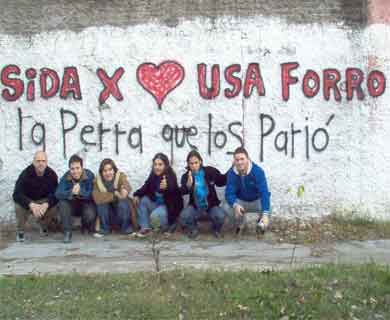 SiDA X ❤ USA FORRO
la Perra que los Parió